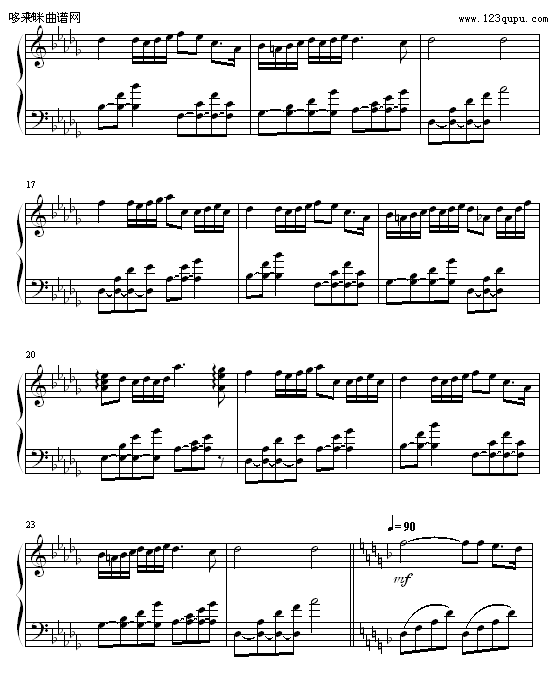 哆来咪曲谱网
www.123qupu.com
17
20
23
♩= 90
mf